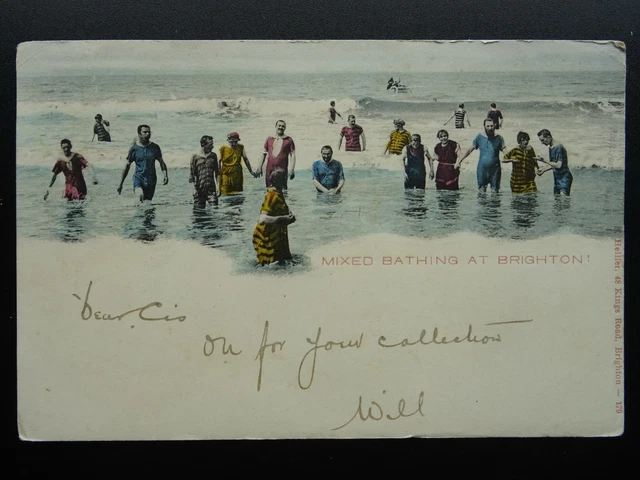 MIXED BATHING AT BRIGHTON!
Hellier, 48 Kings Road, Brighton — 179
Dear Cis
on for your collection
Will